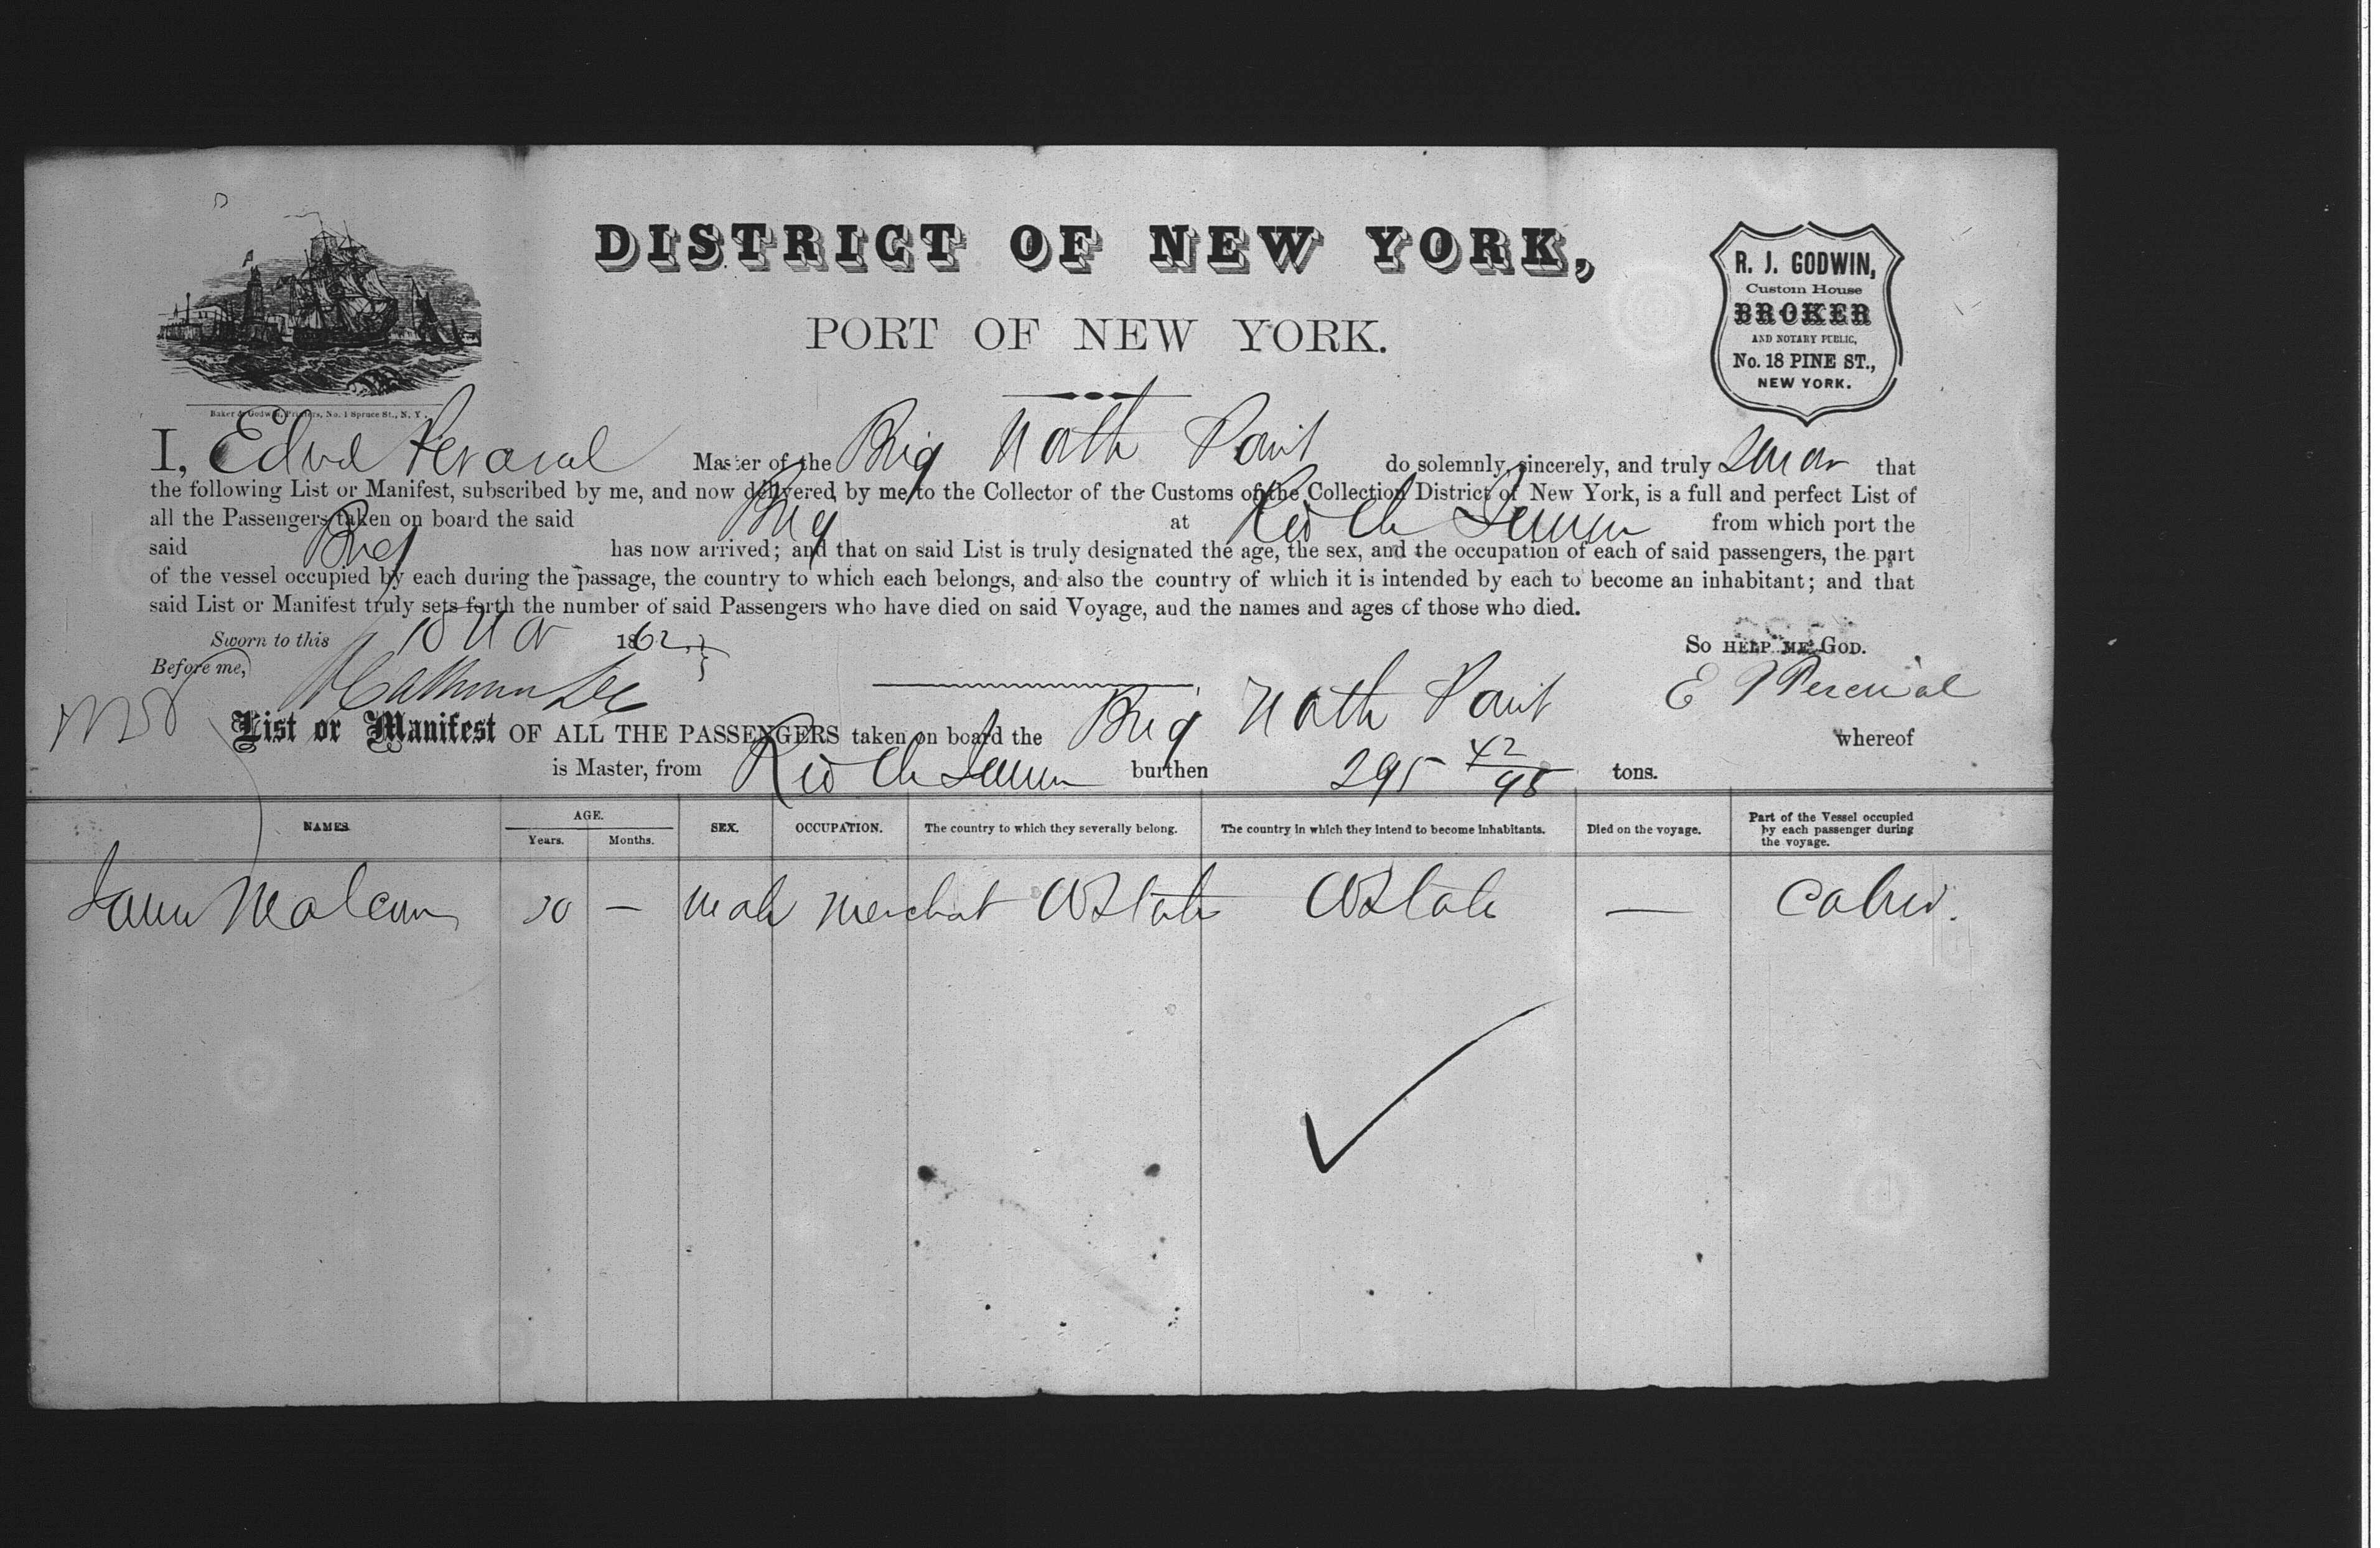 DISTRICT OF NEW YORK,
PORT OF NEW YORK.
R. J. GODWIN,
Custom House
BROKER
AND NOTARY PUBLIC,
No. 18 PINE ST.,
NEW YORK.
Baker & Godwin, Printers, No. 1 Spruce St., N. Y.
I, Edwd Percival Master of the Brig Nath do solemnly, sincerely, and truly swear that
the following List or Manifest, subscribed by me, and now delivered by me to the Collector of the Customs of the Collection District of New York, is a full and perfect List of
all the Passengers taken on board the said Brig at from which port the
said Brig has now arrived; and that on said List is truly designated the age, the sex, and the occupation of each of said passengers, the part
of the vessel occupied by each during the passage, the country to which each belongs, and also the country of which it is intended by each to become an inhabitant; and that
said List or Manifest truly sets forth the number of said Passengers who have died on said Voyage, and the names and ages of those who died.
Sworn to this 18 1862 So HELP ME GOD.
Before me,
E Percival
List or Manifest OF ALL THE PASSENGERS taken on board the Brig Nath whereof
is Master, from burthen 295 42/95 tons.
NAMES AGE. SEX. OCCUPATION. The country to which they severally belong. The country in which they intend to become inhabitants. Died on the voyage. Part of the Vessel occupied by each passenger during the voyage.
Years. Months.
— male merchant — Cabin.